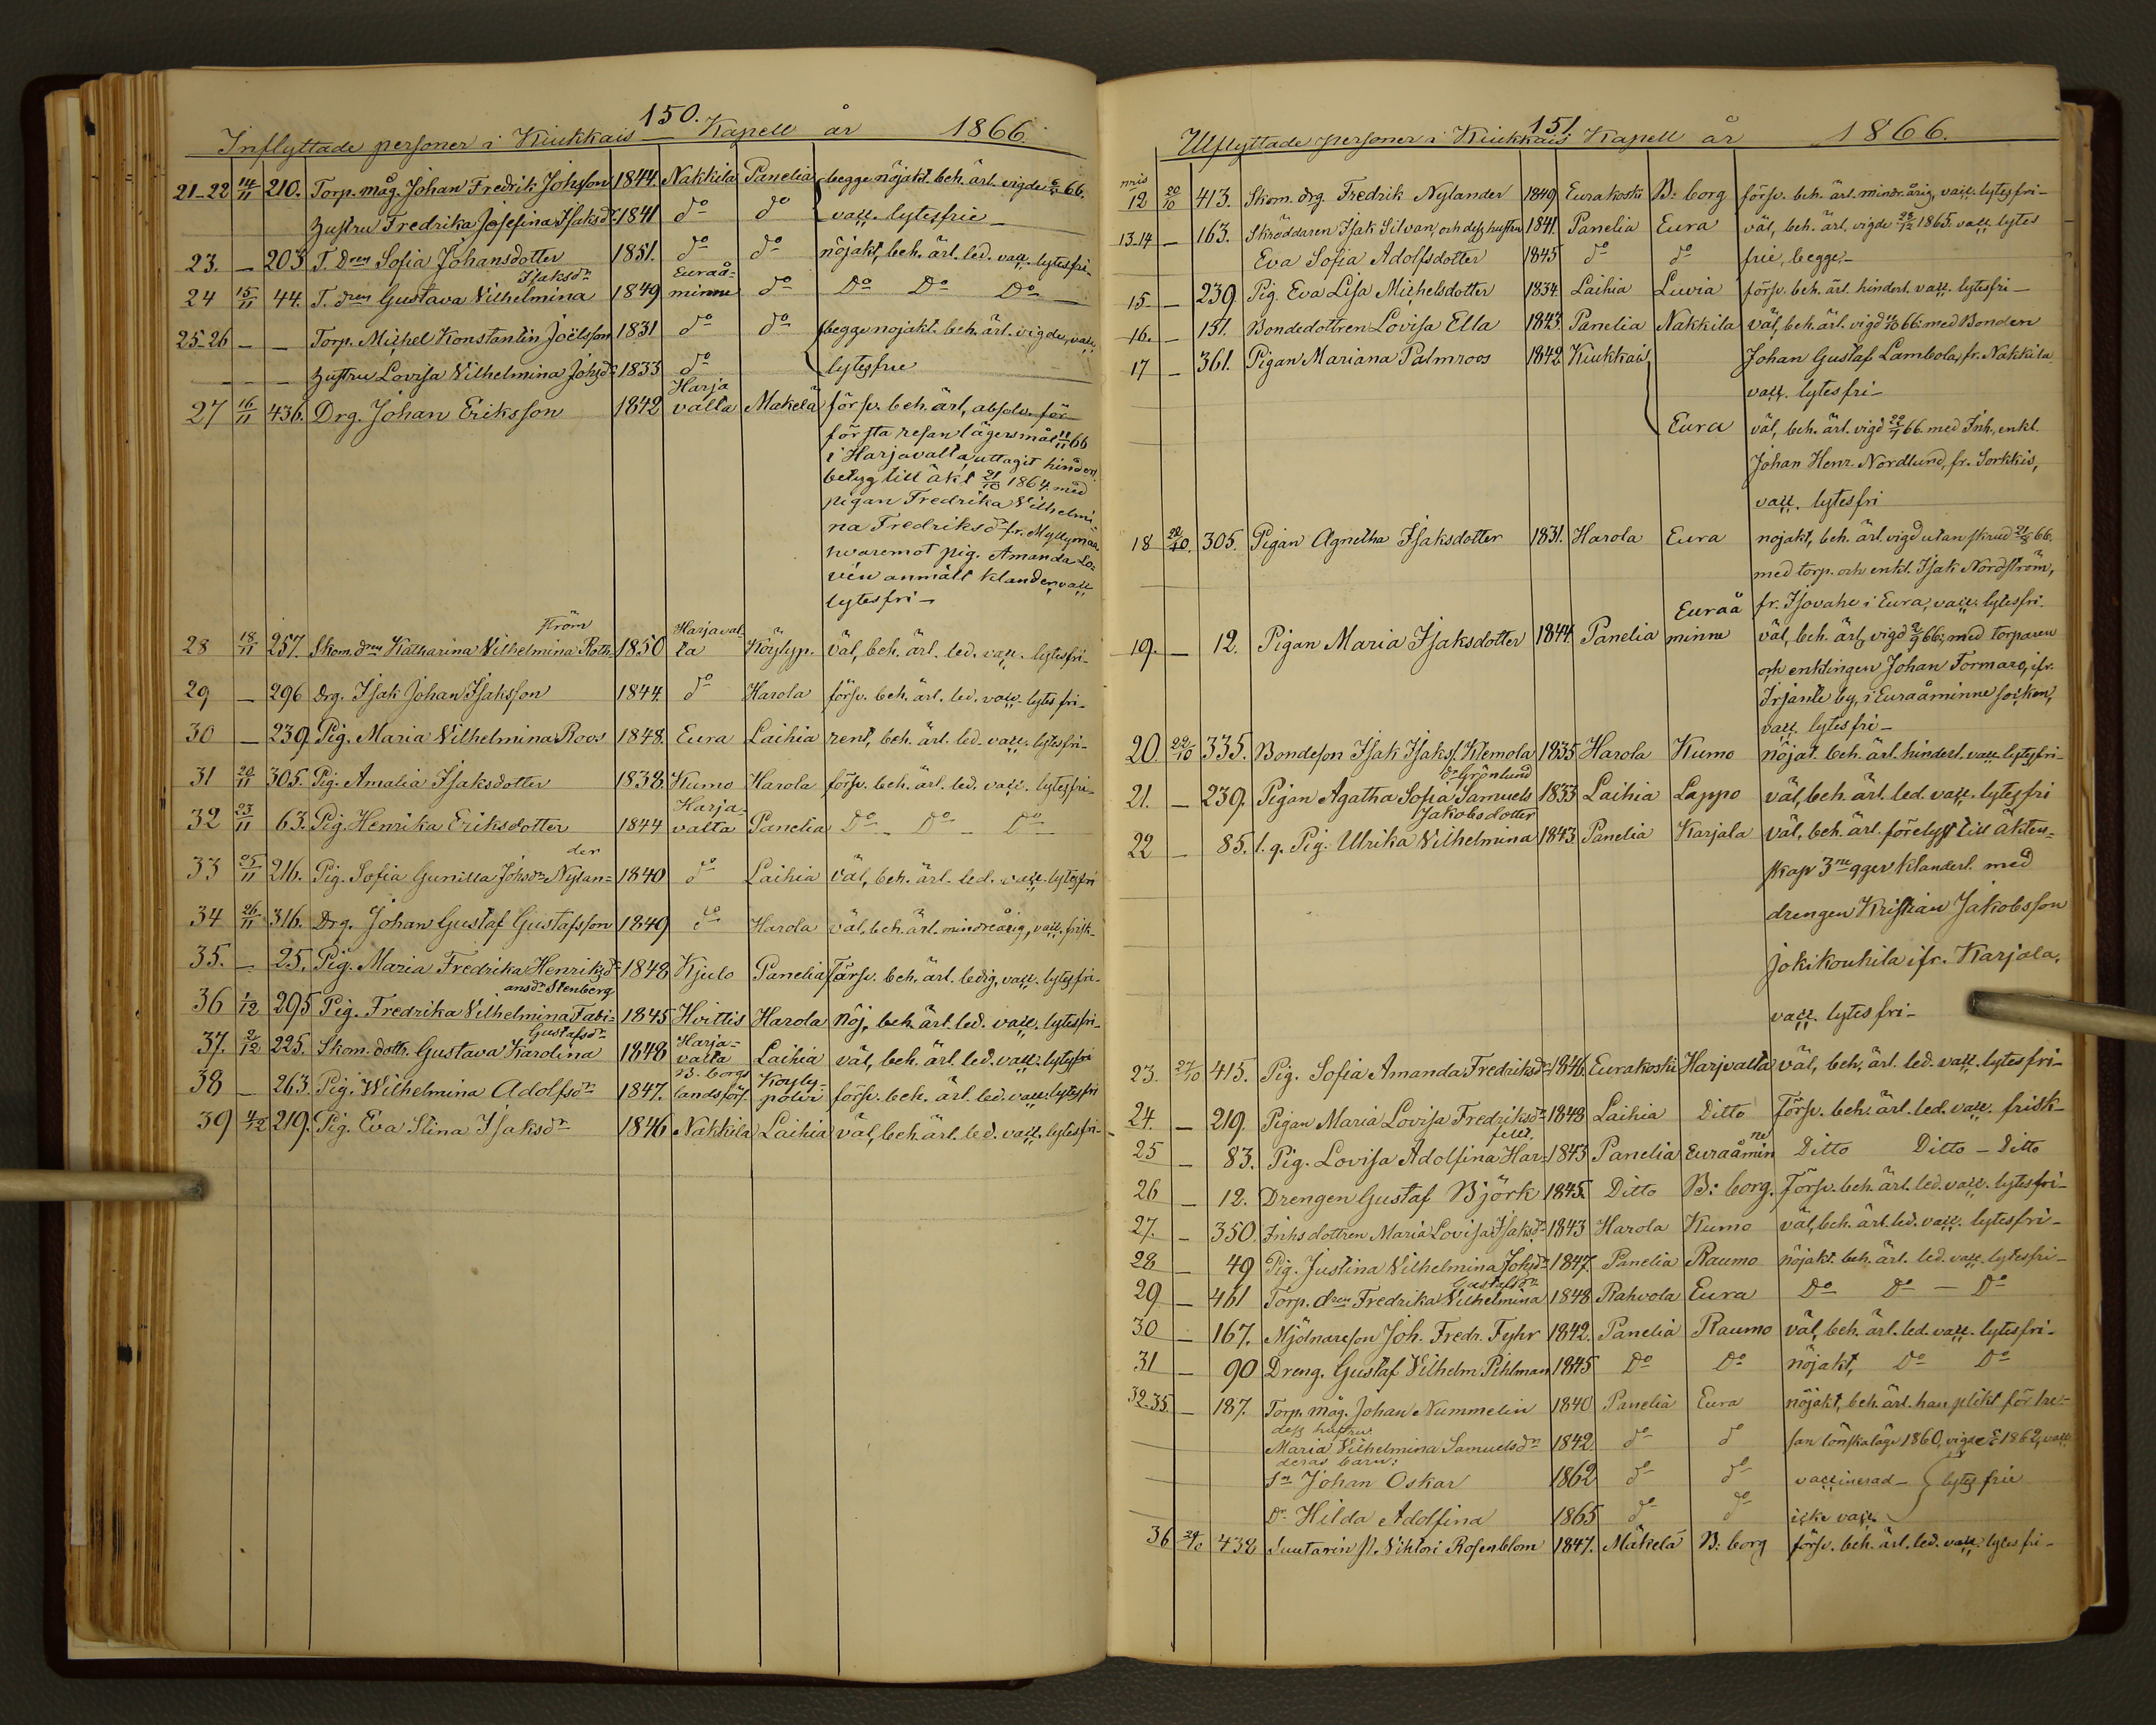 150.
Inflyttade personer i Kiukkais Kapell år 1866.
21-22 14/11 210. Torp. måg. Johan Fredrik Johsson 1844. Nakkila Panelia begge nöjakt. beh. ärl. vigde 66.
Hustru Fredrika Josefina Isaksdr 1841 do do vacc. lytesfrie
23. — 203 T. dren Sofia Johansdotter 1851. do do nöjakt, beh. ärl. led. vacc. lytesfri-
Isaksdr Euraå-
24 15/11 44. T. dren Gustava Vilhelmina 1849 minne do Do Do Do
25-26 — — Torp. Michel Konstantin Joëlsson 1831 do do begge nojakt. beh. ärl. vigde, vacc.
— — — Hustru Lovisa Vilhelmina Johsdr 1833 do lytesfrie
Harja
27 16/11 436. Drg. Johan Eriksson 1842 valta Makelä försv. beh. ärl, absolv. för
första resan lägersmål 18/11 66
i Harjavalta, uttagit hinders
betyg till äkt 21/10 1864. med
pigan Fredrika Vilhelmi-
na Fredriksdr fr. Myllymaa
hvaremot pig. Amanda Lo-
vén anmält klander, vacc
lytesfri -
ström Harjaval-
28 18/11 257. Skom. dren Katharina Vilhelmina Roth- 1850 ta Köylyp. väl, beh. ärl. led. vacc. lytesfri-
29 — 296 Drg. Isak Johan Isaksson 1844. do Harola försv. beh. ärl. led. vacc. lytesfri-
30 — 239. Pig. Maria Vilhelmina Roos 1848. Eura Laihia rent, beh. ärl. led. vacc. lytesfri-
31 20/11 305. Pig. Amalia Isaksdotter 1838. Kumo Harola försv. beh. ärl. led. vacc. lytesfri-
Harja-
32 23/11 63. Pig. Henrika Eriksdotter 1844 valta Panelia Do — Do — Do
der
33 25/11 216. Pig. Sofia Gunilla Johsdr Nylan- 1840 do Laihia väl, beh. ärl. led. vacc. lytesfri
34 26/11 316. Drg. Johan Gustaf Gustafsson 1849 do Harola väl, beh. ärl. mindreårig, vacc. frisk-
35. — 25. Pig. Maria Fredrika Henriksdr 1848 Kjulo Panelia Försv. beh. ärl. ledig, vacc. lytesfri-
ansdr Stenberg
36 1/12 295 Pig. Fredrika Vilhelmina Fabi- 1845 Hvittis Harola Nöj, beh. ärl. led. vacc. lytesfri-
Gustafsdr Harja-
37. 2/12 225. Skom. dottr. Gustava Karolina 1848 valta Laihia väl, beh. ärl. led. vacc. lytesfri
B. borgs Köyly-
38 — 263. Pig. Wilhelmina Adolfsdr 1847. landsförs. polvi försv. beh. ärl. led. vacc. lytesfri
39 4/12 219. Pig. Eva Stina Isaksdr 1846 Nakkila Laihia väl, beh. ärl. led. vacc. lytesfri-
151.
Utflyttade personer i Kiukkais Kapell år 1866.
nris
12 20/10 413. Skom. drg. Fredrik Nylander 1849 Eurakoski B: borg försv. beh. ärl. mindr. årig, vacc. lytesfri-
13.14 — 163. Skräddaren Isak Silvan, och dess hustru 1841. Panelia Eura väl, beh. ärl, vigde 28/12 1865. vacc. lytes
Eva Sofia Adolfsdotter 1845 do do frie, begge-
15 — 239. Pig. Eva Lisa Michelsdotter 1834. Laihia Luvia försv. beh. ärl. hinderl. vacc. lytesfri-
16. — 151. Bondedottren Lovisa Ella 1843. Panelia Nakkila väl, beh. ärl. vigd 66. med Bonden
17 — 361. Pigan Mariana Palmroos 1842 Kiukkais Johan Gustaf Lambola, fr. Nakkila
vacc. lytesfri-
Eura väl, beh. ärl. vigd 66. med Inh., enkl.
Johan Henr. Nordlund, fr. Sorkkis,
vacc. lytesfri
18 22/10. 305. Pigan Agnetha Isaksdotter 1831. Harola Eura nojakt, beh. ärl. vigd utan skrud 21/8 66.
med torp. och enkl. Isak Nordström,
Euraå fr. Isovahe i Eura, vacc. lytesfri.
19. — 12. Pigan Maria Isaksdotter 1844. Panelia minne väl, beh. ärl, vigd 66; med torparen
och enklingen Johan Formare, ifr.
Irjante by, i Euraåminne socken,
vacc. lytesfri-
20. 22/10 335. Bondeson Isak Isaks. Klemola 1835 Harola Kumo nöjat. beh. ärl. hinderl. vacc. lytesfri-
dr Grönlund
21. — 239. Pigan Agatha Sofia Samuels 1833 Laihia Lappo väl, beh. ärl. led. vacc. lytesfri
Jakobsdotter
22 — 85. l. q. Pig. Ulrika Vilhelmina 1843. Panelia Karjala väl, beh. ärl. förelyst till äkten-
skap 3ne gger klanderl. med
drengen Kristian Jakobsson
Jokikouhila ifr. Karjala,
vacc. lytesfri-
23. 27/10 415. Pig. Sofia Amanda Fredriksdr 1846. Eurakoski Harjvalta väl, beh, ärl. led. vacc. lytesfri-
24. — 219. Pigan Maria Lovisa Fredriksdr 1848 Laihia Ditto Försv. beh. ärl. led. vacc. frisk-
feld. ne
25 — 83. Pig. Lovisa Adolfina Har- 1843 Panelia Euraåmin Ditto Ditto — Ditto
26 — 12. Drengen Gustaf Björk 1845. Ditto B: borg. Försv. beh. ärl. led. vacc. lytesfri-
27. — 350. Inhs dottren Maria Lovisa Isaksdr 1843 Harola Kumo väl, beh. ärl. led. vacc. lytesfri-
28 — 49 Pig. Justina Vilhelmina Johsdr 1847. Panelia Raumo nöjakt. beh. ärl. led. vacc. lytesfri-
Gustafsdr
29 — 461 Torp. dren Fredrika Vilhelmina 1848 Rahvola Eura Do Do — Do
30 — 167. Mjölnareson Joh. Fredr. Fyhr 1842. Panelia Raumo väl, beh. ärl. led. vacc. lytesfri-
31 — 90 Dreng. Gustaf Vilhelm Pihlman 1845 Do Do nöjakt, Do Do
32-35. — 187. Torp. måg. Johan Nummelin 1840 Panelia Eura nöjakt, beh. ärl. han plikt för tre-
dess hustru:
Maria Vilhelmina Samuelsdr 1842. do do san lönskaläge 1860, vigde 1862, vacc.
deras barn:
Sn Johan Oskar 1862 do do vaccinerad - lytesfrie
Dr Hilda Adolfina 1865 do do icke vacc.
36 29/10 438 Suutarin p. Viktori Rosenblom 1847. Mäkelä B: borg försv. beh. ärl. led. vacc. lytesfri-